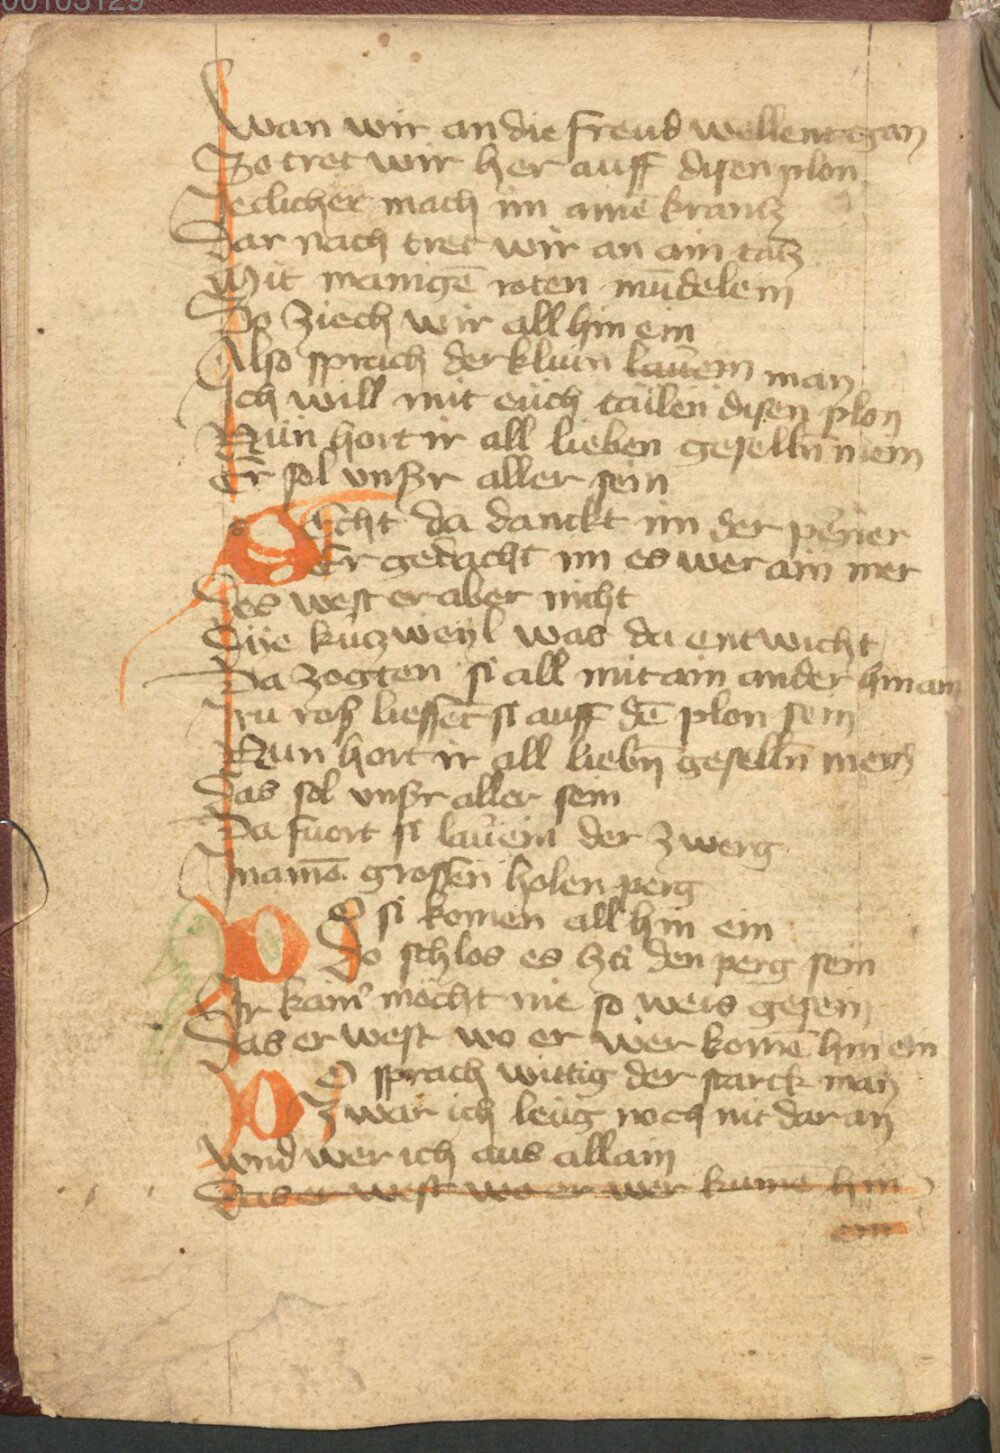 00103129
Wan wir an die freud wellent gan
So tret wir her auff disen plon
Jeclicher mach im ainē krantz
Dar nach tret wir an ain tātz
Mit manigē roten mūdelein
Do ziech wir all hin ein
Also sprach der kluin lauein man
Ich will mit eüch tailen disen plon
Nün hort ir all lieben geselln̄ mein
Er sol vnsʒr aller sein
Secht da danckt im der perner
Er gedacht im es wer ain mer
Des west er aber nicht
Dije kůrzweyl was da entwicht
Da zogten si all mit ain ander hin ain
Irü roß liessēt si auff dē plon sein
Nun hort ir all liebn̄ geselln̄ mein
Das sol vnsʒr aller sein
Da fuort si lauein der zwerg
In ainē grossen holen perg
Do si komen all hin ein
Do schlos es zů den perg sein
Ir kainʼ mocht nie so weis gesein
Das er west wo er wer komē hin ein
Do sprach wittig der starck man
Zwar ich leüg noch nit dar an
Wnd wer ich aus allain
Das er west wo er wer kumē hin
ein